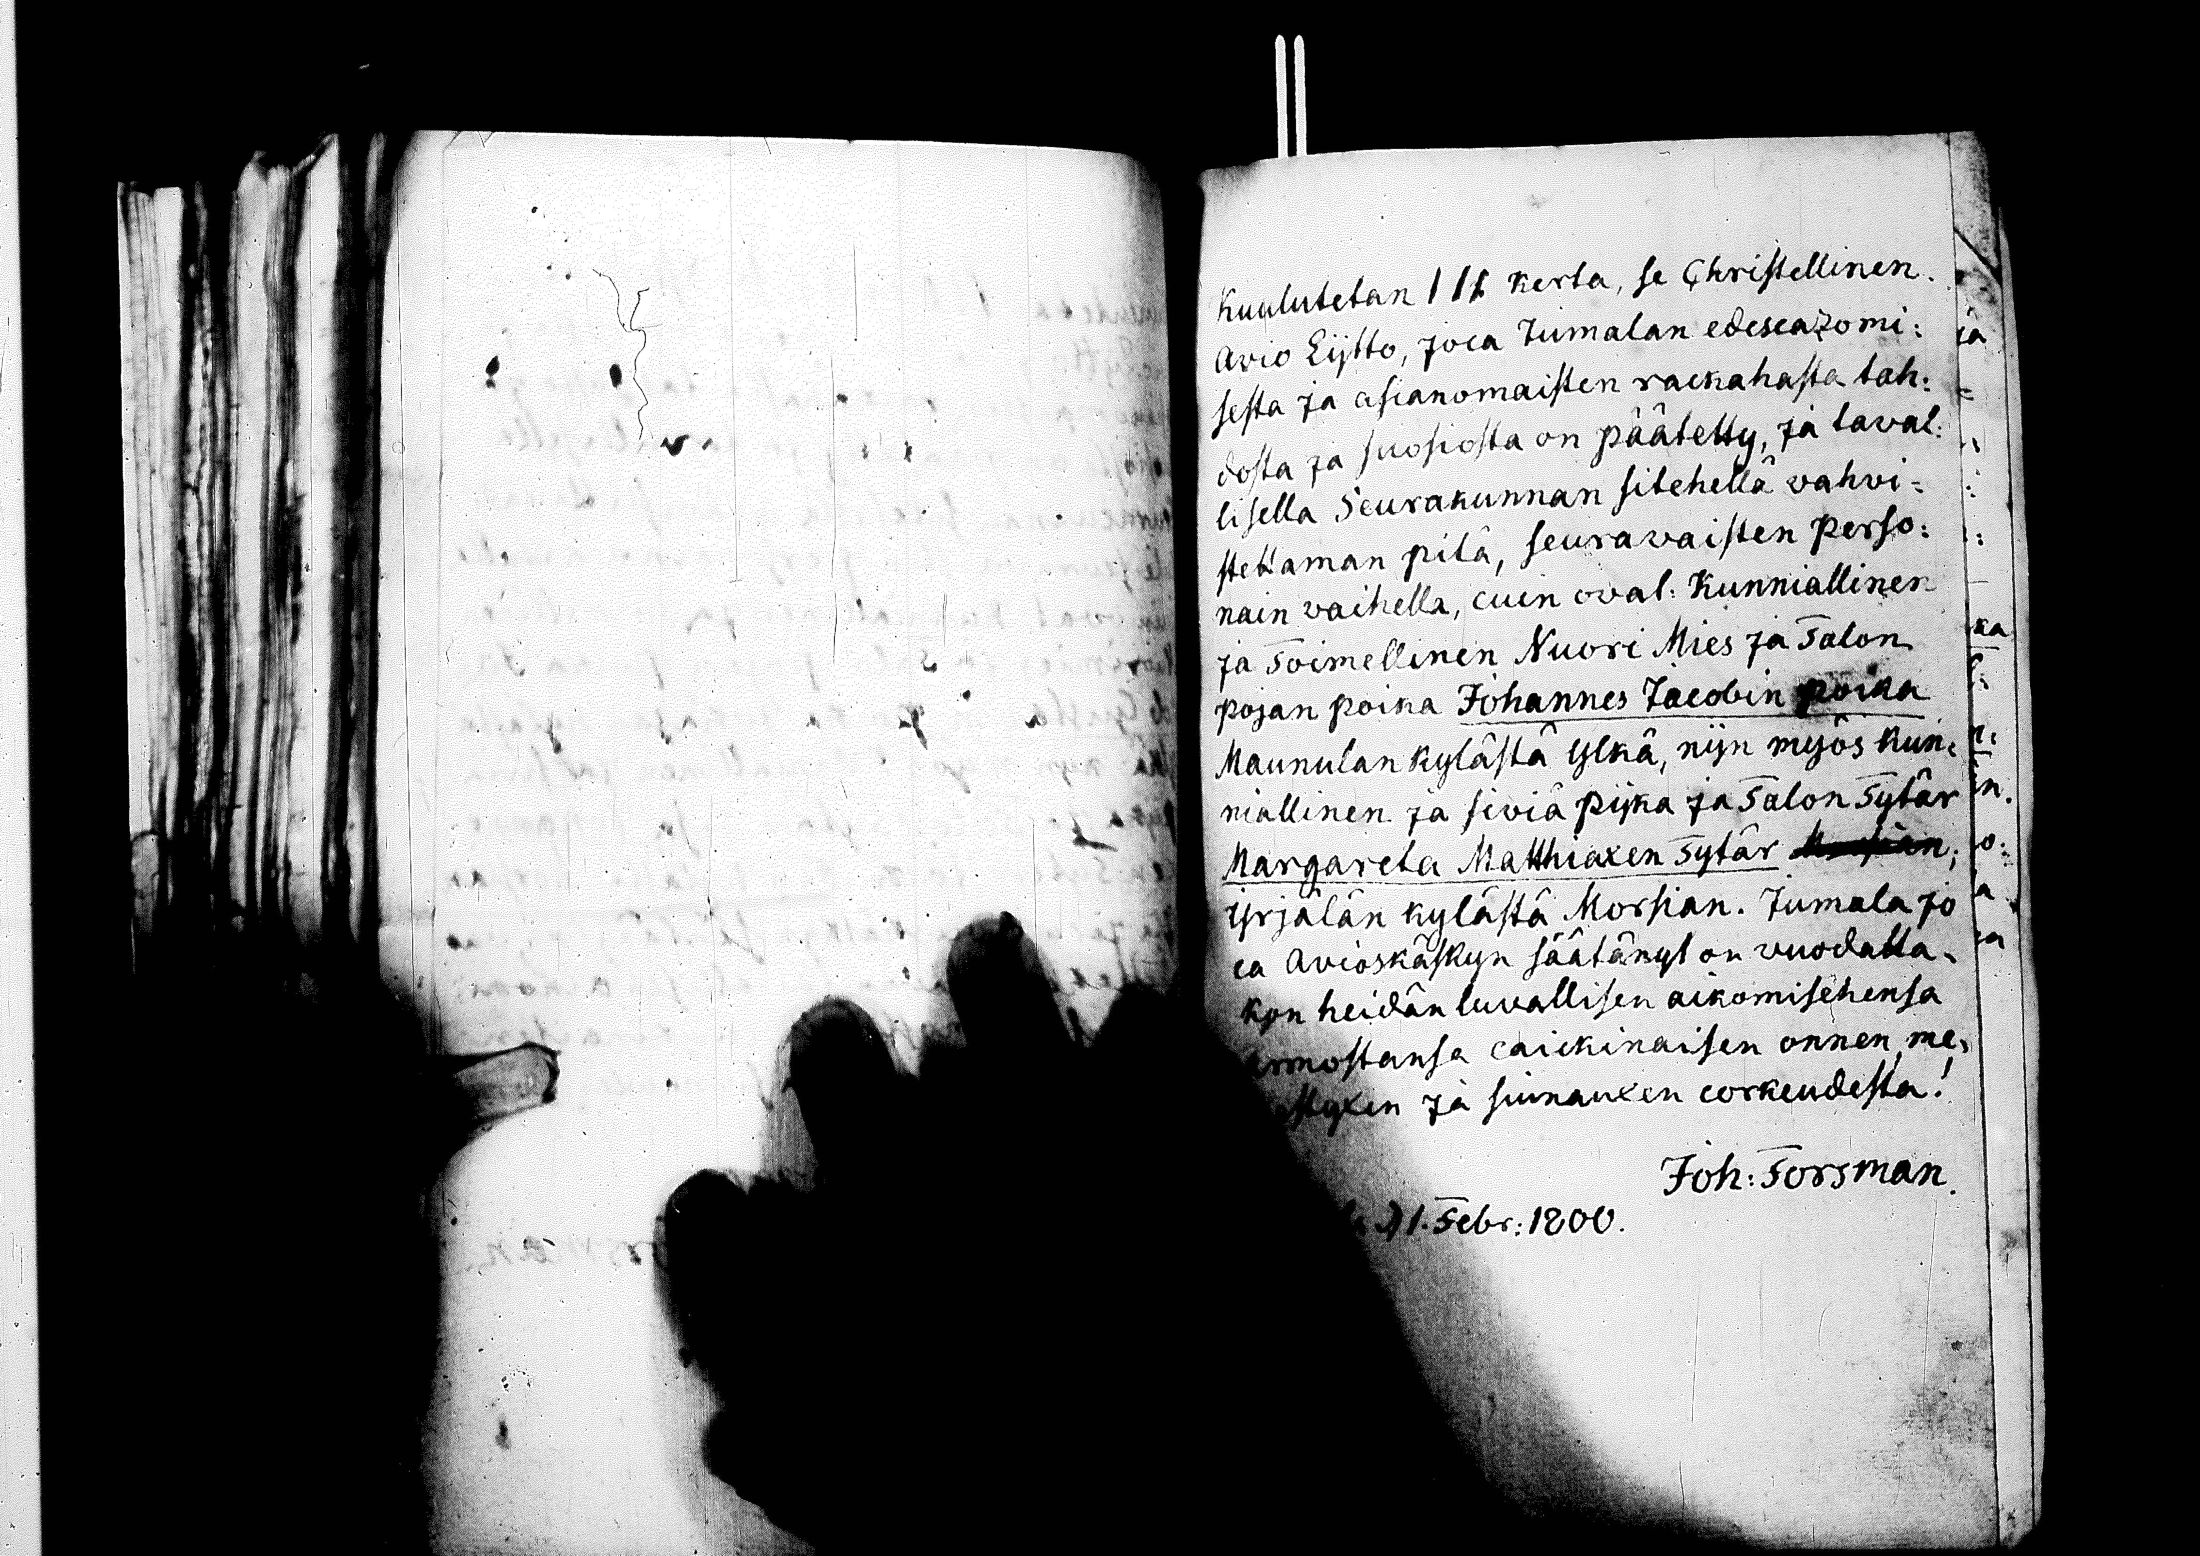 Kuulutetan III kerta, se Christellinen
Avio Lijtto, joca Jumalan edesca7omi:
sesta ja asianomaisten rackahasta tah:
dosta ja suosiosta on päätetty, ja taval:
lisella Seurakunnan sitehellä vahvi:
stettaman pitä, seuravaisten perso:
nain vaihella, cuin ovat: Kunniallinen
ja Toimellinen Nuori Mies ja Talon
pojan poika Johannes Jacobin poika
Maunulan kylästä Ylkä, nijn myös kun:
niallinen ja siviä pijka ja Talon Tytär
Margareta Matthiaxen Tytär
Yrjälän kylästä Morsian. Jumala jo
ca Avioskäskyn säätänyt on vuodatta:
kon heidän luvallisen aikomisehensa
armostansa caickinaisen onnen, me:
styxen ja siunauxen corkeudesta!
Joh: Forsman.
1. Febr: 1800.